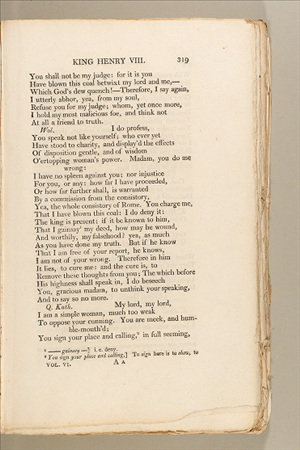 KING HENRY VIII. 319
You shall not be my judge: for it is you
Have blown this coal betwixt my lord and me,—
Which God's dew quench!—Therefore, I say again,
I utterly abhor, yea, from my soul,
Refuse you for my judge; whom, yet once more,
I hold my most malicious foe, and think not
At all a friend to truth.
Wol. I do profess,
You speak not like yourself; who ever yet
Have stood to charity, and display'd the effects
Of disposition gentle, and of wisdom
O'ertopping woman's power. Madam, you do me
wrong:
I have no spleen against you; nor injustice
For you, or any: how far I have proceeded,
Or how far further shall, is warranted
By a commission from the consistory,
Yea, the whole consistory of Rome. You charge me,
That I have blown this coal: I do deny it:
The king is present: if it be known to him,
That I gainsay⁸ my deed, how may he wound,
And worthily, my falsehood? yea, as much
As you have done my truth. But if he know
That I am free of your report, he knows,
I am not of your wrong. Therefore in him
It lies, to cure me: and the cure is, to
Remove these thoughts from you: The which before
His highness shall speak in, I do beseech
You, gracious madam, to unthink your speaking,
And to say so no more.
Q. Kath. My lord, my lord,
I am a simple woman, much too weak
To oppose your cunning. You are meek, and hum-
ble-mouth'd;
You sign your place and calling,⁹ in full seeming,
⁸ —— gainsay —] i. e. deny.
⁹ You sign your place and calling,] To sign here is to show, to
VOL. VI. A A